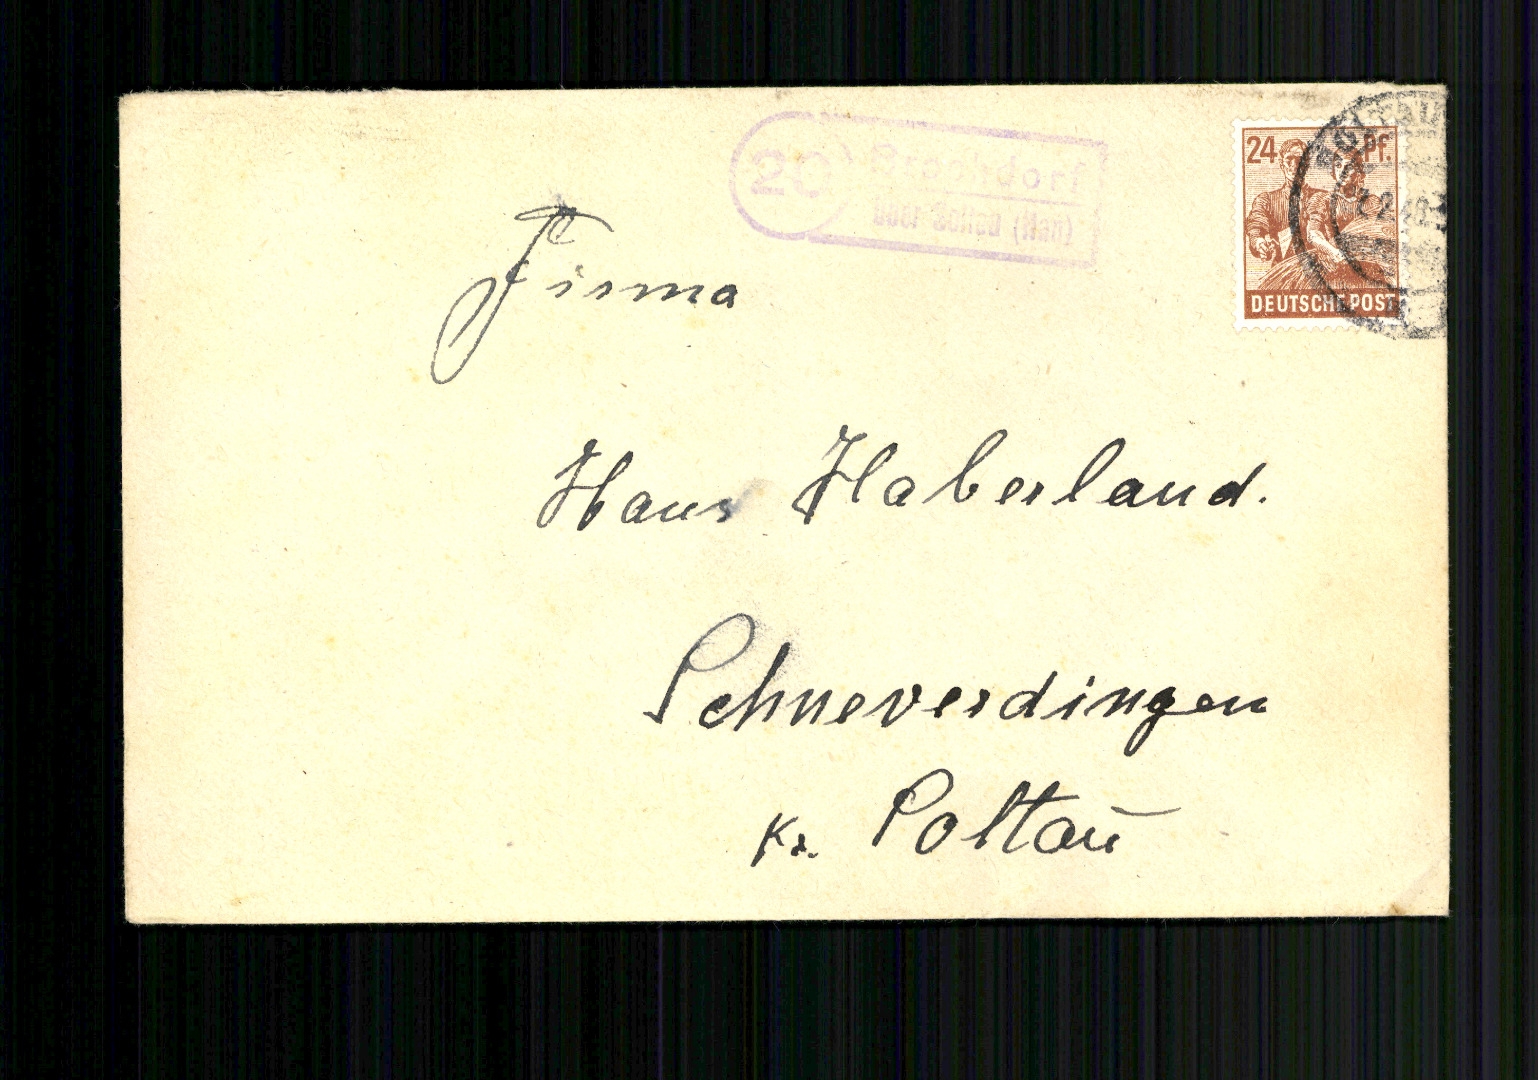 20
Brochdorf
über Soltau (Han)
24 Pf.
SOLTAU
DEUTSCHE POST
Firma
Hans Haberland.
Schneverdingen
Kr. Soltau